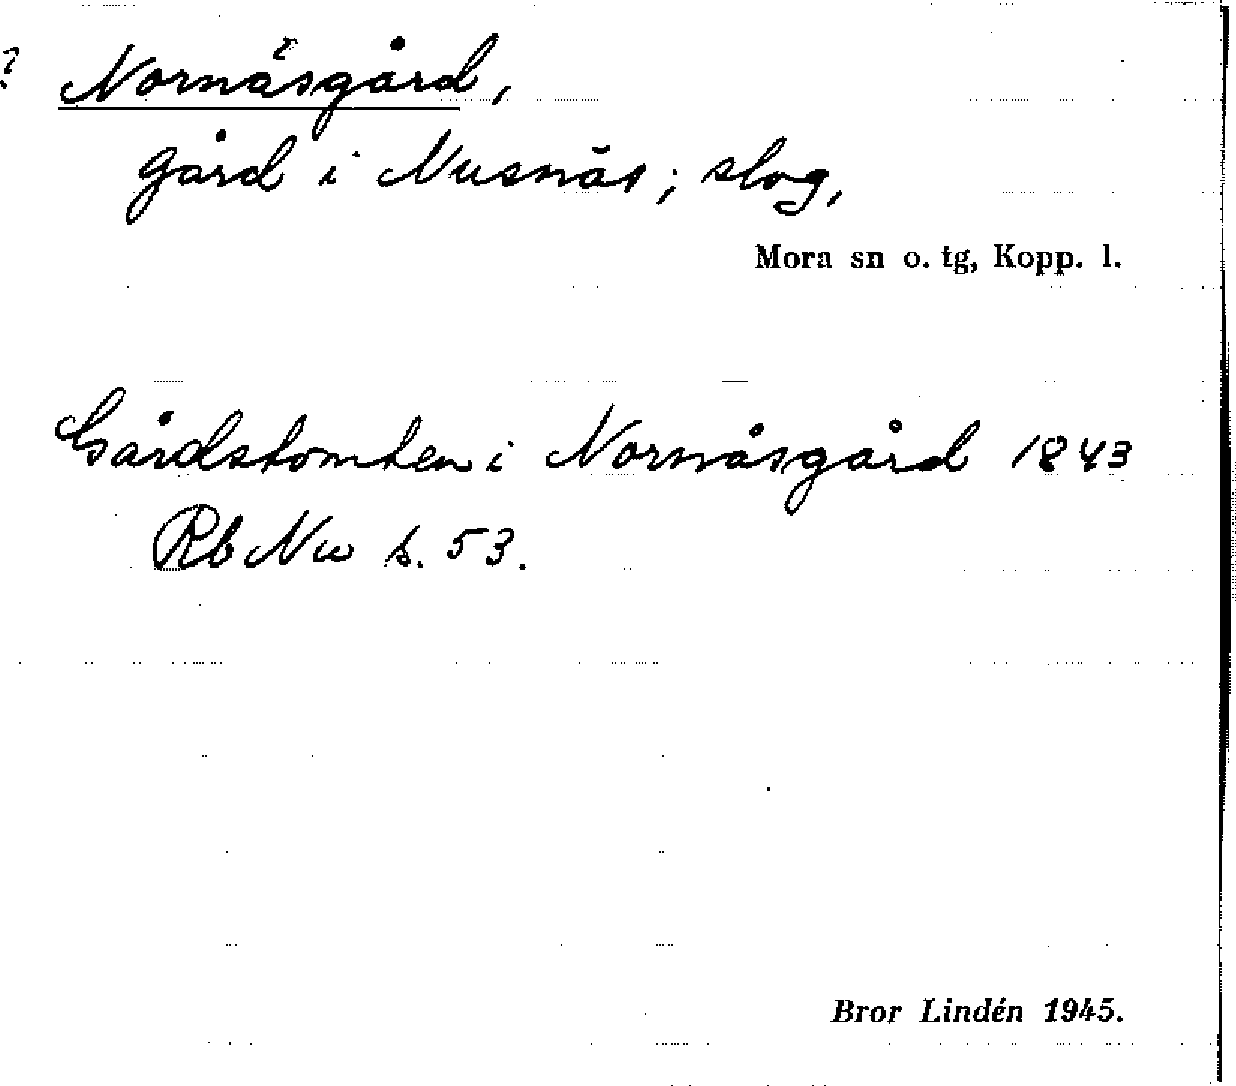 ? Nornäsgård,
gård i Nusnäs; slog,
Mora sn o. tg, Kopp. l.
Gårdstomten i Nornåsgård 1843
Rb Nu s. 53.
Bror Lindén 1945.